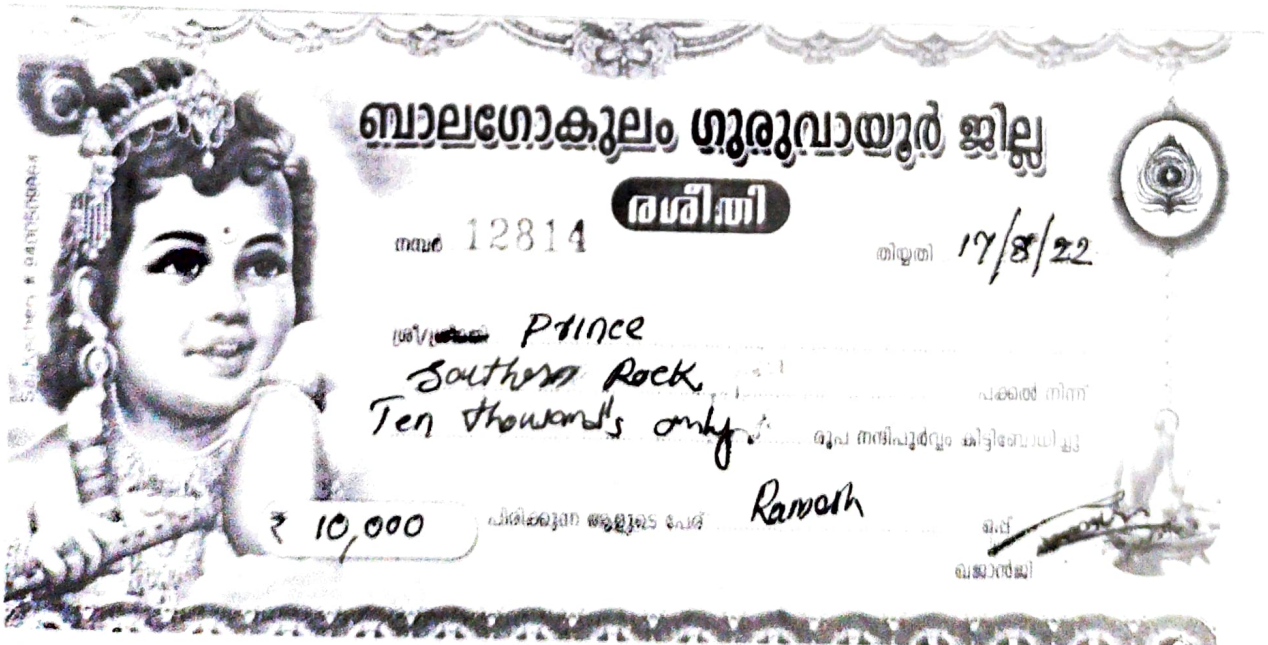 ബാലഗോകുലം ഗുരുവായൂർ ജില്ല
രശീതി
നമ്പർ 12814 തിയ്യതി 17/8/22
ശ്രീ/ Prince
Southern Rock, പക്കൽ നിന്ന്
Ten thousand's only. രൂപ നന്ദിപൂർവ്വം കിട്ടിബോധിച്ചു
₹ 10,000 പിരിക്കുന്ന ആളുടെ പേര് Ramesh ഒപ്പ്
ഖജാൻജി